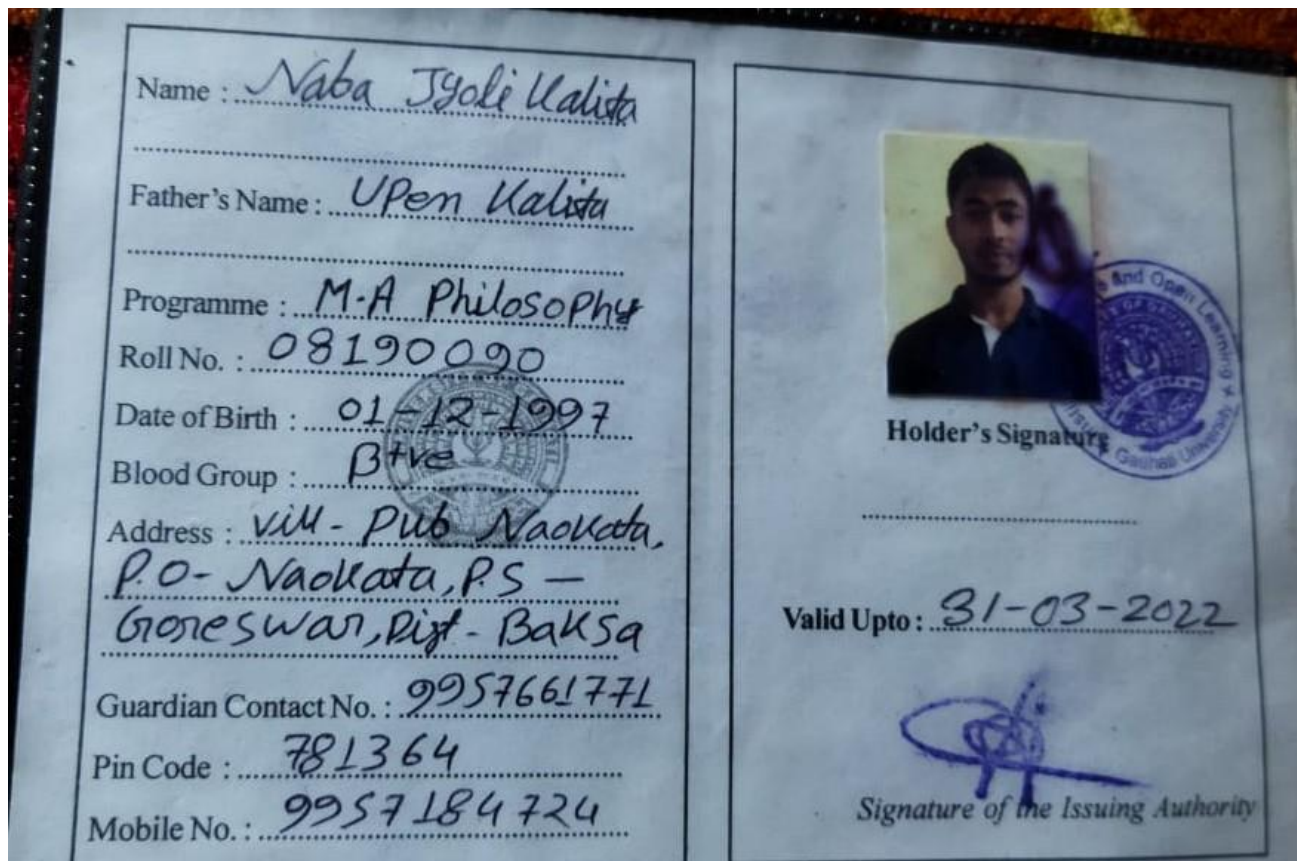 Name : Naba Jyoti Kalita
Father's Name : UPen Kalita
Programme : M.A Philosophy
Roll No. : 08190090
Date of Birth : 01-12-1997
Blood Group : B+ve
Address : Vill - Pub Naokata,
P.O- Naokata, P.S -
Goreswar, Dist - Baksa
Guardian Contact No. : 9957661771
Pin Code : 781364
Mobile No. : 9957184724
And Open Learning
Gauhati University
Holder's Signature
Valid Upto : 31-03-2022
Signature of the Issuing Authority